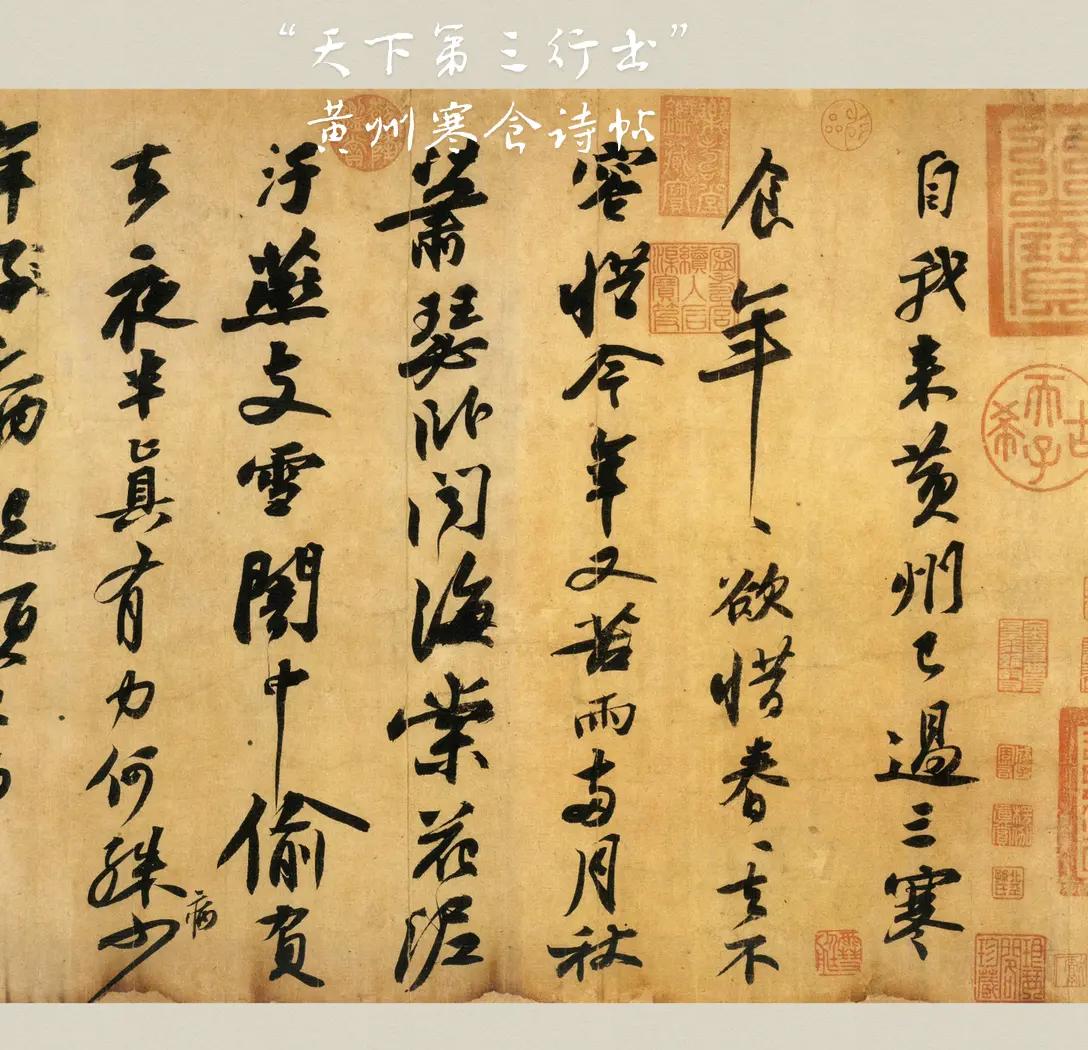 “天下第三行书”
黄州寒食诗帖
自我来黄州已過三寒
食年、欲惜春、去不
容惜今年又苦雨两月秋
蕭瑟卧聞海棠花泥
汙燕支雪闇中偷負
去夜半眞有力何殊少
病
年子病起須
古希天子